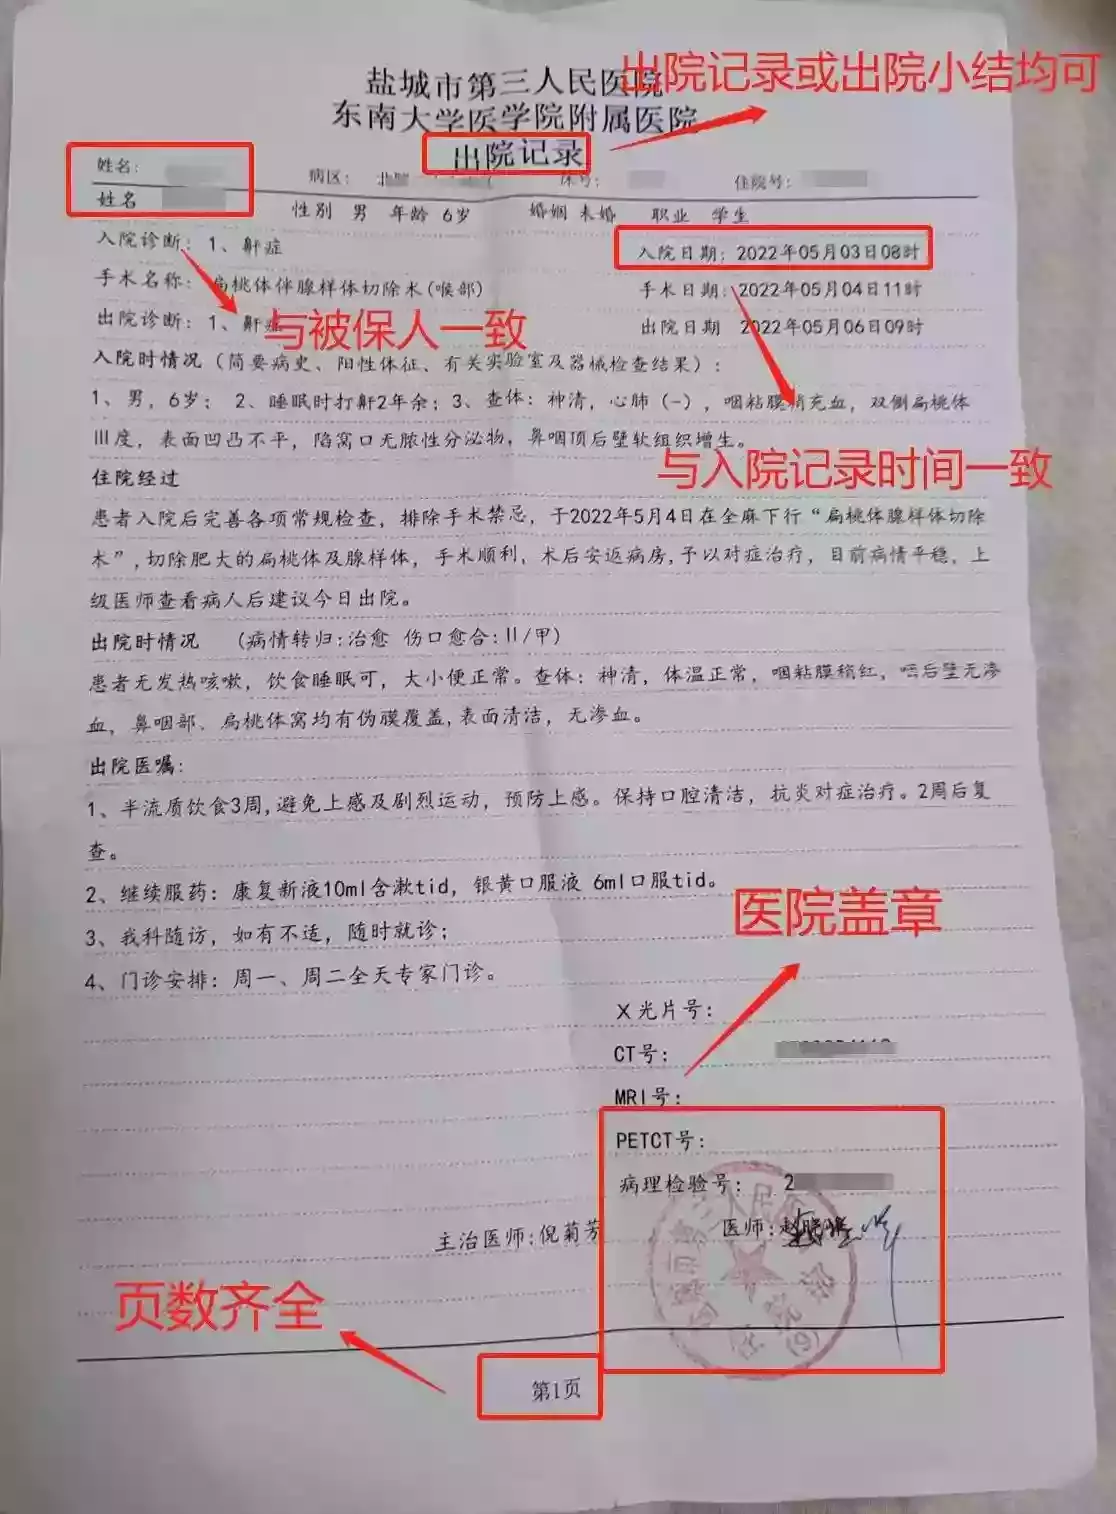 出院记录或出院小结均可
盐城市第三人民医院
东南大学医学院附属医院
出院记录
姓名:
病区: 北 床号: 住院号:
姓名 性别 男 年龄 6岁 婚姻 未婚 职业 学生
入院诊断: 1、鼾症 入院日期: 2022年05月03日08时
手术名称: 扁桃体伴腺样体切除术(喉部) 手术日期: 2022年05月04日11时
出院诊断: 1、鼾症 出院日期 2022年05月06日09时
与被保人一致
入院时情况 (简要病史、阳性体征、有关实验室及器械检查结果):
1、男, 6岁; 2、睡眠时打鼾2年余; 3、查体: 神清, 心肺 (-), 咽粘膜稍充血, 双侧扁桃体
III度, 表面凹凸不平, 陷窝口无脓性分泌物, 鼻咽顶后壁软组织增生。
与入院记录时间一致
住院经过
患者入院后完善各项常规检查, 排除手术禁忌, 于2022年5月4日在全麻下行“扁桃体腺样体切除
术”, 切除肥大的扁桃体及腺样体, 手术顺利, 术后安返病房, 予以对症治疗, 目前病情平稳, 上
级医师查看病人后建议今日出院。
出院时情况 (病情转归:治愈 伤口愈合:II/甲)
患者无发热咳嗽, 饮食睡眠可, 大小便正常。查体: 神清, 体温正常, 咽粘膜稍红, 咽后壁无渗
血, 鼻咽部、扁桃体窝均有伪膜覆盖, 表面清洁, 无渗血。
出院医嘱:
1、半流质饮食3周, 避免上感及剧烈运动, 预防上感。保持口腔清洁, 抗炎对症治疗。2周后复
查。
2、继续服药: 康复新液10ml含漱tid, 银黄口服液 6ml口服tid。
医院盖章
3、我科随访, 如有不适, 随时就诊;
4、门诊安排: 周一、周二全天专家门诊。
X光片号:
CT号:
MRI号:
PETCT号:
病理检验号: 2
主治医师:倪菊芳 医师:
页数齐全
第1页